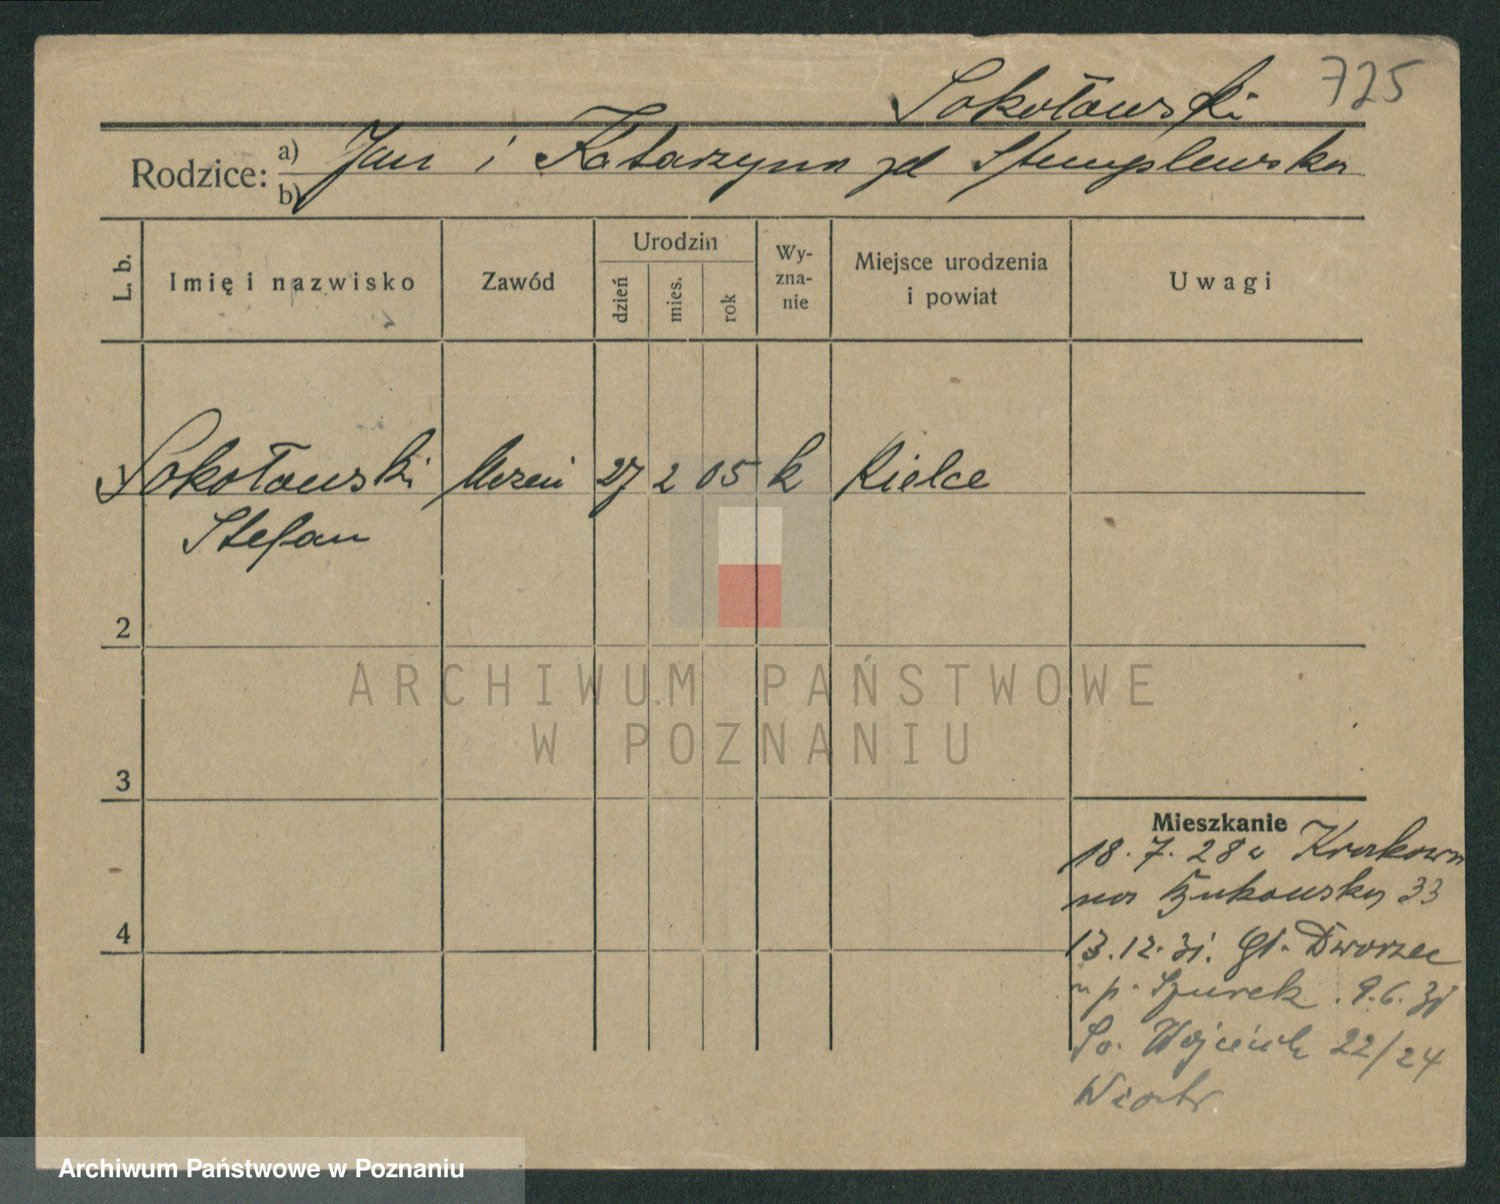 Sokołowski 725
Rodzice: a) Jan i Katarzyna zd Stemplewska
b)
L. b. Imię i nazwisko Zawód Urodzin dzień mies. rok Wy-zna-nie Miejsce urodzenia i powiat Uwagi
Sokołowski uczeń 27 2 05 k Kielce
Stefan
2
ARCHIWUM PAŃSTWOWE
W POZNANIU
3
Mieszkanie
18. 7. 28 Krakowa
na Bukowska 33
4
13. 12. 31. Gł. Dworzec
p. Szurek . 9. 6. 31
Św. Wojciech 22/24
Archiwum Państwowe w Poznaniu